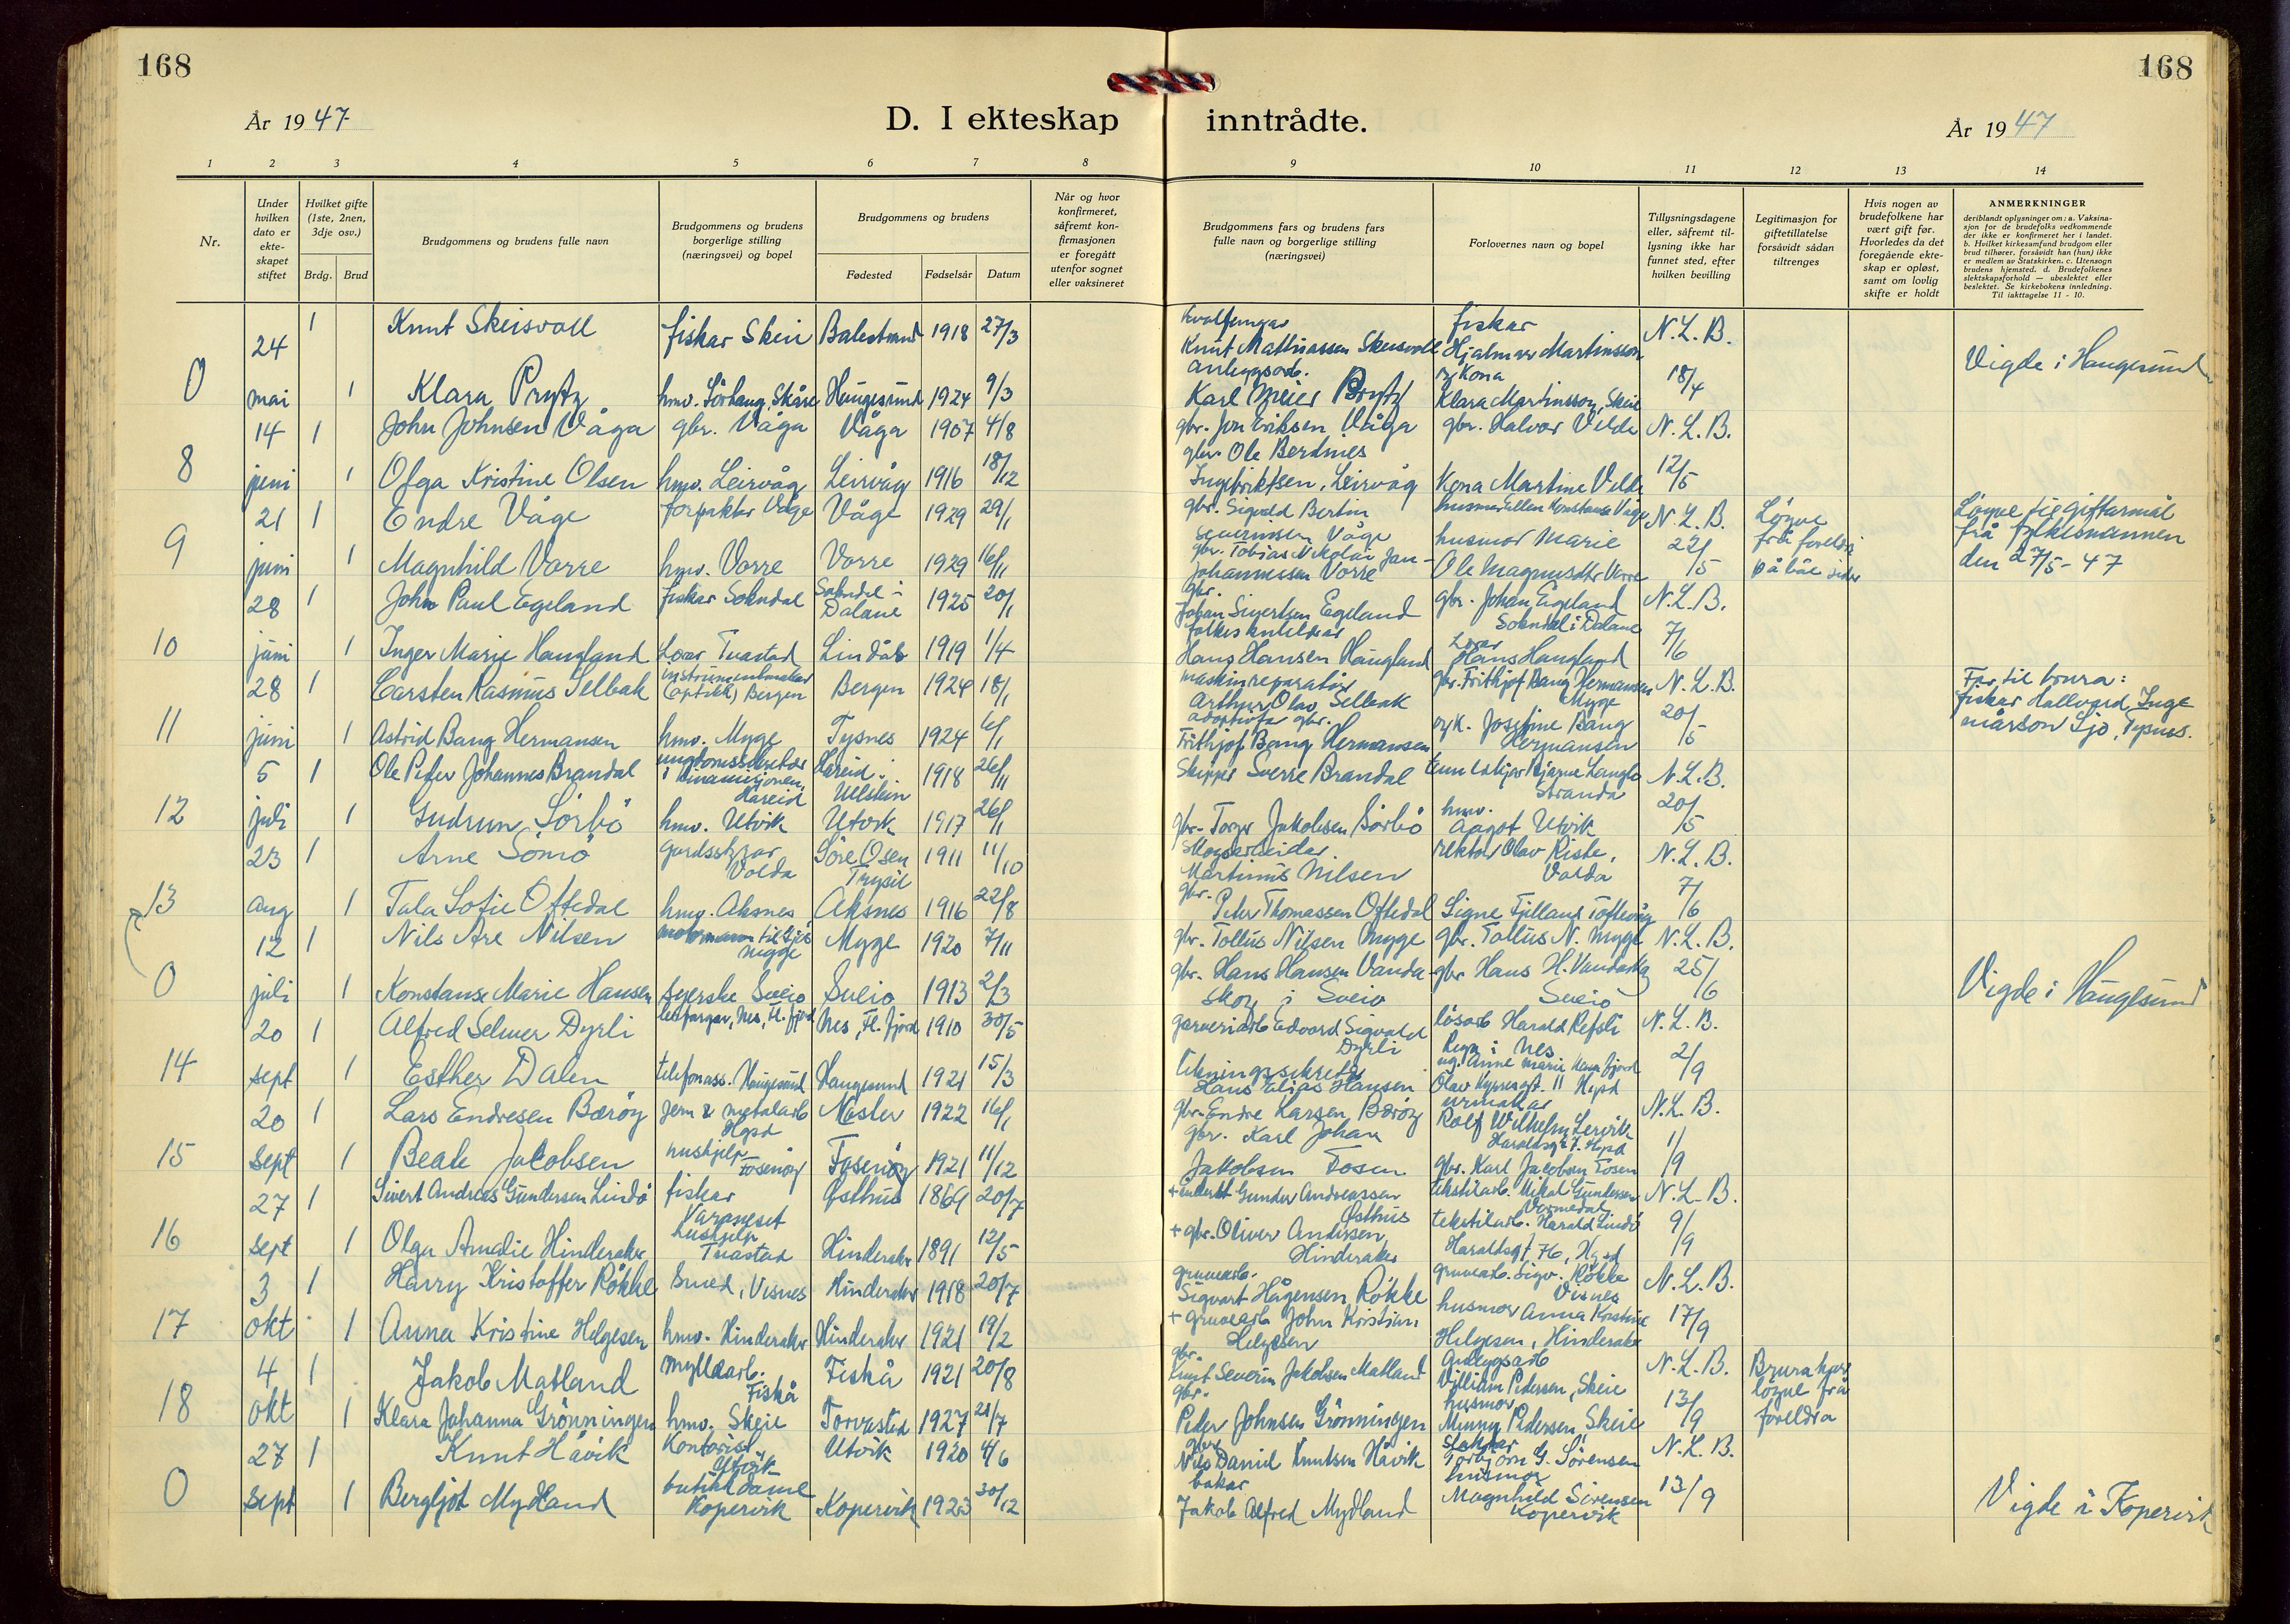 168
168
År 1947
D. I ekteskap inntrådte.
År 1947
1 2 3 4 5 6 7 8 9 10 11 12 13 14
Nr.
Under hvilken dato er ekte-skapet stiftet
Hvilket gifte (1ste, 2nen, 3dje osv.)
Brdg. Brud
Brudgommens og brudens fulle navn
Brudgommens og brudens borgerlige stilling (næringsvei) og bopel
Brudgommens og brudens
Fødested Fødselsår Datum
Når og hvor konfirmeret, såfremt kon-firmasjonen er foregått utenfor sognet eller vaksineret
Brudgommens fars og brudens fars fulle navn og borgerlige stilling (næringsvei)
Forlovernes navn og bopel
Tillysningsdagene eller, såfremt til-lysning ikke har funnet sted, efter hvilken bevilling
Legitimasjon for giftetillatelse forsåvidt sådan tiltrenges
Hvis nogen av brudefolkene har vært gift før. Hvorledes da det foregående ekte-skap er opløst, samt om lovlig skifte er holdt
ANMERKNINGER
deriblandt oplysninger om: a. Vaksina-sjon for de brudefolks vedkommende der ikke er konfirmeret her i landet. b. Hvilket kirkesamfund brudgom eller brud tilhører, forsåvidt han (hun) ikke er medlem av Statskirken. c. Utensogn brudens hjemsted. d. Brudefolkenes slektskapsforhold — ubeslektet eller beslektet. Se kirkebokens innledning. Til iakttagelse 11 - 10.
24 1 Knut Skeisvoll fiskar Skei Balestrand 1918 27/3 Knut Mathiassen Skeisvoll fiskar Hjalmar Martinsson N.L.B.
0 mai 1 Klara Prytz hmv. Sørhaug, Skåre Haugesund 1924 9/3 Karl Meier Prytz og kona Klara Martinsson, Skeie 18/4 Vigde i Haugesund
14 1 John Johnsen Våga gbr. Våga Våga 1907 4/8 gbr. Jon Eriksen Våga gbr. Halvor Velde N.L.B.
8 juni 1 Olga Kristine Olsen hmv. Leirvåg Leirvåg 1916 18/12 gbr. Ole Berdines Ingebriktsen, Leirvåg Kona Martine Velde 12/5
21 1 Endre Våge forpaktar Våge Våge 1929 29/1 gbr. Sigvald Bertin Severinsen Våge husmor Ellen Konstanse Våge N.L.B. Løyve frå foreldri på båe sider
9 juni 1 Magnhild Vorre hmv. Vorre Vorre 1929 16/11 gbr. Tobias Nikolai Jan-Johannessen Vorre husmor Marie Ole Magnusdtr Vorre 22/5 Løyve til giftarmål frå fylkesmannen den 27/5-47
28 1 John Paul Egeland fiskar Sokndal Sokndal i Dalane 1925 20/1 gbr. Johan Sivertsen Egeland gbr. Johan Egeland Sokndal i Dalane N.L.B.
10 juni 1 Inger Marie Haugland Lærar Tuastad Lindås 1919 1/4 Hans Hansen Haugland Lærar Hans Haugland 7/6
28 1 Carsten Rasmus Selbak instrumentmakar (optikk) Bergen Bergen 1924 18/1 maskinreparatør Arthur Olav Selbak gbr. Frithjof Bang Hermansen Myge N.L.B. Far til brura: fiskar Hallvard Inge-
11 juni 1 Astrid Bang Hermansen hmv. Myge Tysnes 1924 6/1 adoptivfar gbr. Frithjof Bang Hermansen og k. Josefine Bang Hermansen 20/5 mårson Sjo, Tysnes.
5 1 Ole Peter Johannes Brandal ungdomssekretær i Kinamisjonen, Hareid Hareid i Ulstein 1918 26/11 Skipper Sverre Brandal Bjarne Langlo Stranda N.L.B.
12 juli 1 Gudrun Sørbø hmv. Utvik Utvik 1917 26/1 gbr. Torger Jakobsen Sørbø hmv. Aagot Utvik 20/5
23 1 Arne Sømo gardsstyrar Volda Søre Osen Trysil 1911 11/10 Skogsarbeidar Martinus Nilsen rektor Olav Riste, Volda N.L.B.
13 aug 1 Tala Sofie Oftedal hmv. Aksnes Aksnes 1916 22/8 gbr. Peter Thomassen Oftedal Signe Fjelland Toftevåg 7/6
12 1 Nils Are Nilsen til sjøs Mygge Myge 1920 7/11 gbr. Tollus Nilsen Mygge gbr. Tollus N. Myge N.L.B.
0 juli 1 Konstanse Marie Hansen syerske Sveio Sveio 1913 2/3 gbr. Hans Hansen Vanda-skog i Sveio gbr Hans H. Vandaskog Sveio 25/6 Vigde i Haugesund
20 1 Alfred Selmer Dyrli Nes, H. fjord Nes, H. fjord 1910 30/5 garveriarb Edvard Sigvald Dyrli løsarb Harald Refsti N.L.B.
14 sept 1 Esther Dalen telefonass. Haugesund Haugesund 1921 15/3 Hans Elias Hansen Olav Kyrresgt. 11 Hgsd 2/9
20 1 Lars Endresen Bærøy jern & metalarb Hgsd Nesten 1922 16/1 gbr. Endre Larsen Bærøy urmakar Rolf Wilhelm Lervik Haraldsgt. 7. Hgsd N.L.B.
15 sept 1 Beate Jakobsen hushjelp Fosenøy Fosenøy 1921 11/12 gbr. Karl Johan Jakobsen Fosen gbr. Karl Jacobsen Fosen 1/9
27 1 Sivert Andreas Gundersen Lindø fiskar Varaneset Østhus 1869 20/7 + Gunder Andreassen Østhus tekstilarb. Mikal Gundersen Vormedal N.L.B.
16 sept 1 Olga Amalie Hinderaker hushjelp Tuastad Hinderaker 1891 12/5 + gbr. Oliver Andersen Hinderaker tekstilarb. Harald Lindø Haraldsgt 76, Hgsd 9/9
3 1 Harry Kristoffer Røkke Smed, Visnes Hinderaker 1918 20/7 gruvearb. Sigvart Hågensen Røkke gruvearb. Sigv. Røkke Visnes N.L.B.
17 okt 1 Anna Kristine Helgesen hmv. Hinderaker Hinderaker 1921 19/2 + gruvearb John Kristian Helgesen husmor Anna Kristine Helgesen, Hinderaker 17/9
4 1 Jakob Matland myllearb. Fiskå Fiskå 1921 20/8 gbr. Knut Severin Jakobsen Matland Anleggsarb Villiam Pedersen, Skeie N.L.B. Brura have løyve frå foreldra
18 okt 1 Klara Johanna Grønningen hmv. Skeie Torvastad 1927 21/7 gbr. Peder Johnsen Grønningen husmor Minny Pedersen Skeie 13/9
27 1 Knut Håvik Kontorist Utvik Utvik 1920 4/6 gbr Nils Daniel Knutsen Håvik Torbjørn G. Sørensen N.L.B.
0 sept 1 Bergljot Mydland butikkdame Kopervik Kopervik 1923 30/12 bakar Jakob Alfred Mydland husmor Magnhild Sørensen Kopervik 13/9 Vigde i Kopervik